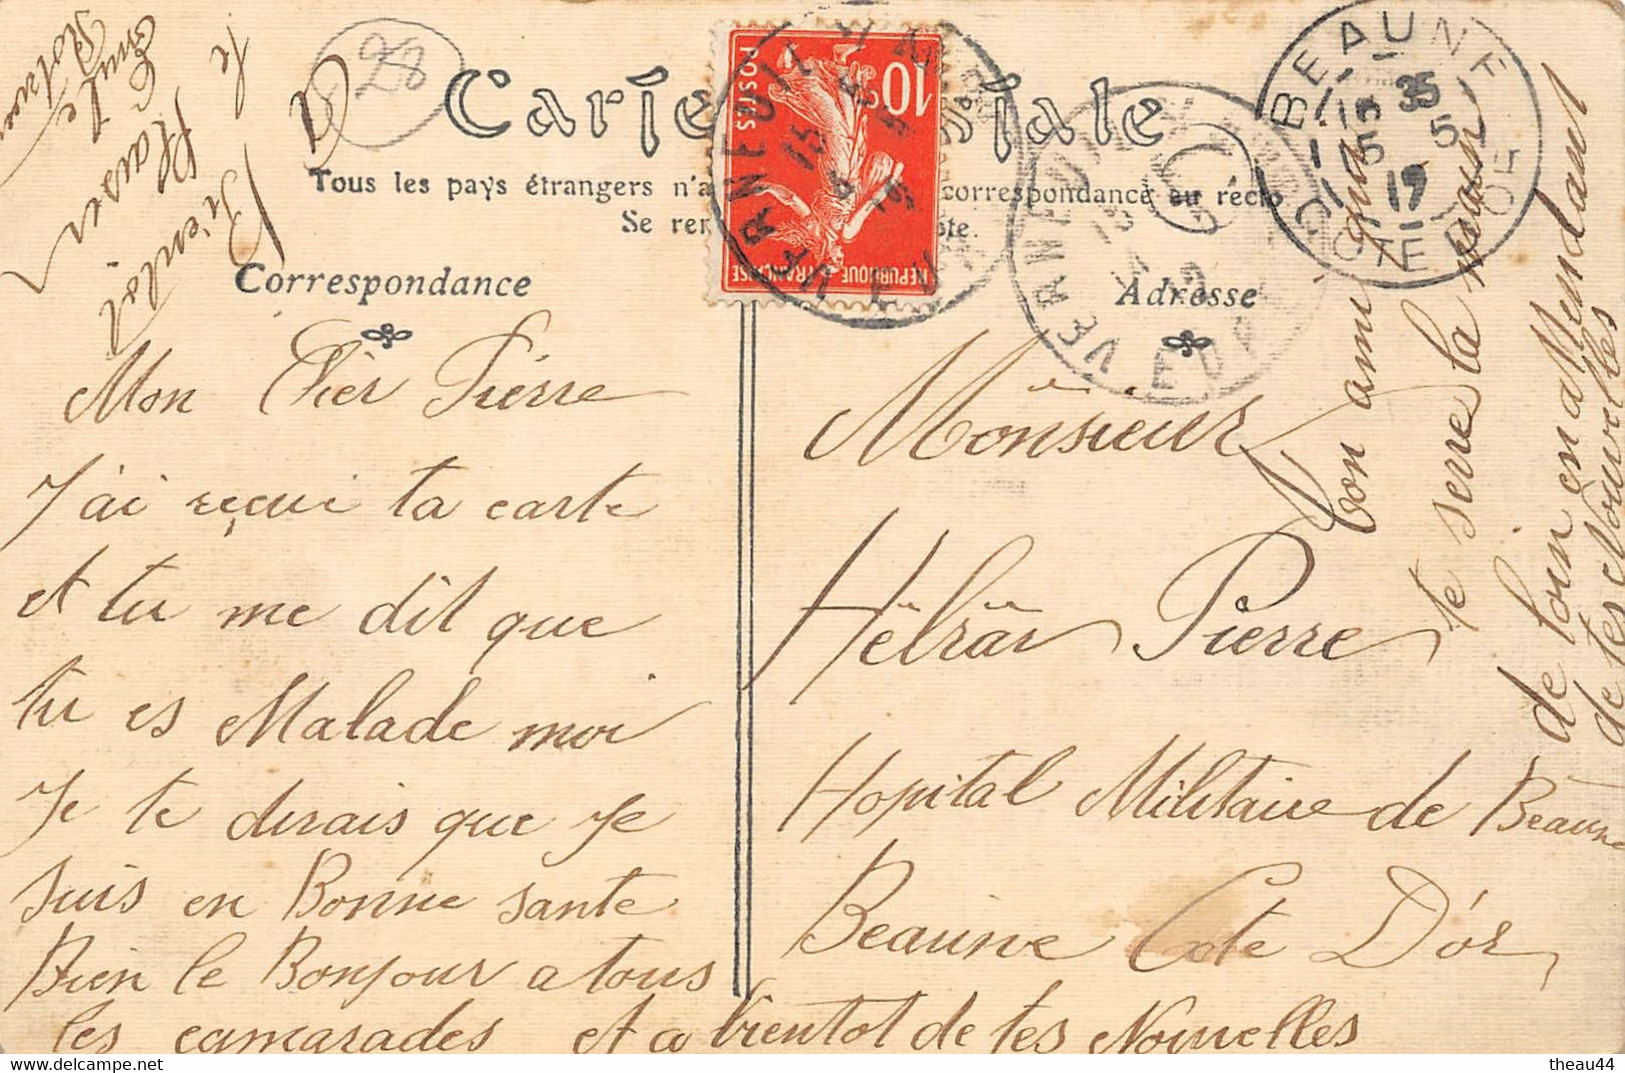 Carte Postale
Tous les pays étrangers n'a correspondance au recto
Se ren ste.
Correspondance
Adresse
28
10c
POSTES
REPUBLIQUE FRANÇAISE
VERNEUIL
EURE
VERNEUIL
EURE
BEAUNE
COTE D'OR
15 35
5 5
19
Mon Chèr Pierre
J'ai reçue ta carte
et tu me dit que
tu es Malade moi
Je te dirais que Je
suis en Bonne sante
Bien le Bonjour a tous
les camarades et a bientot de tes Nouvelles
Monsieur
Hélrar Pierre
Hopital Militaire de Beaune
Beaune Cote D'or
ton ami qui
te serre la main
de loin en attendant
de tes Nouvelles
A
Bientot
le
Plaisir
Emile
theau44